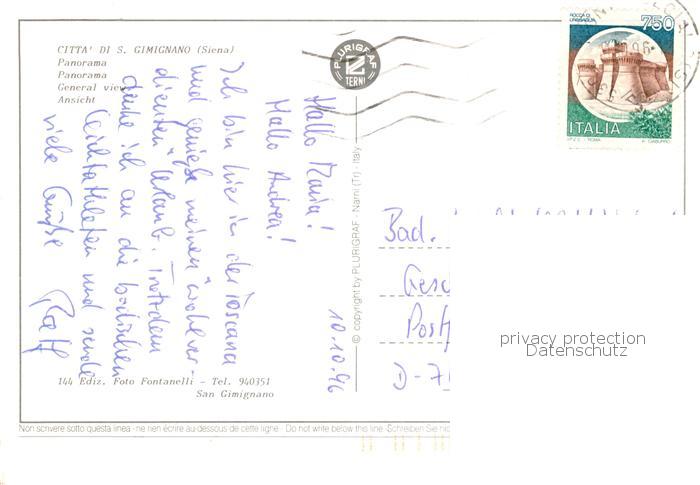 CITTA' DI S. GIMIGNANO (Siena)
Panorama
Panorama
General view
Ansicht
PLURIGRAF
TERNI
ROCCA DI
URBISAGLIA
750
ITALIA
I.P.Z.S. - ROMA
Hallo Maria!
Hallo Andrea!
Ich bin hier in der Toscana
und genieße meinen "wohlver-
dienten" Urlaub. Trotzdem
denke ich an die badischen
Leichtathleten und sende
viele Grüße
Ralf
10.10.96
© copyright by PLURIGRAF - Narni (Tr) - Italy
Bad.
Gesc
Postf
D-7
privacy protection
Datenschutz
144 Ediz. Foto Fontanelli - Tel. 940351
San Gimignano
Non scrivere sotto questa linea - ne rien écrire au-dessous de cette ligne - Do not write below this line - Schreiben Sie nic